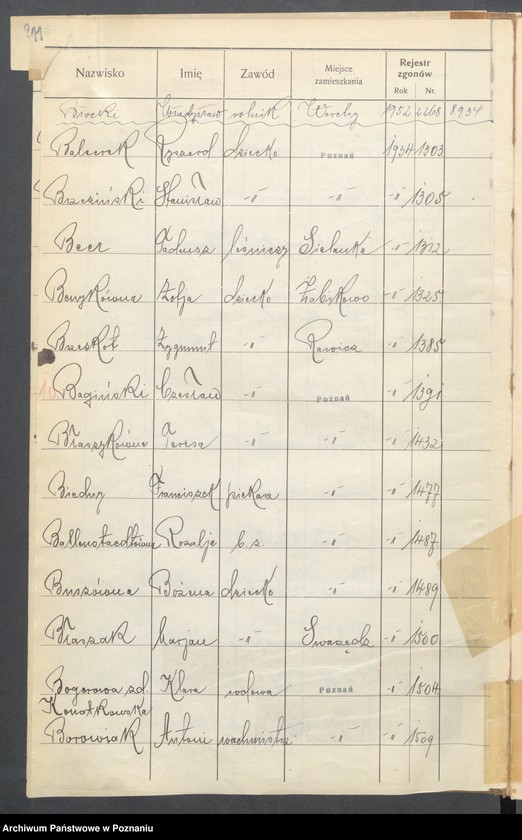 Nazwisko Imię Zawód Miejsce zamieszkania Rejestr zgonów Rok Nr.
Błocki Władysław rolnik 1952 2268 8954
Balcerak Ryszard dziecko Poznań 1934 1303
Brzeziński Stanisław -"- -"- -"- 1305
Beer Tadeusz leśniczy Sielanka -"- 1312
Benykówna Zofja dziecko Żabikowo -"- 1325
Brzeskot Zygmunt -"- Rawicz -"- 1385
10 Bagiński Czesław -"- Poznań -"- 1391
Błaszykówna Teresa -"- -"- -"- 1432
Biedny Franciszek piekarz -"- -"- 1477
Rozalje b.z. -"- -"- 1487
Buszówna Bożena dziecko -"- -"- 1489
Błaszak Marjan -"- Swarzędz -"- 1500
Bogerowa zd. Klara wdowa Poznań -"- 1504
Konatkowska
Borowiak Antoni wachmistrz -"- -"- 1509
Archiwum Państwowe w Poznaniu